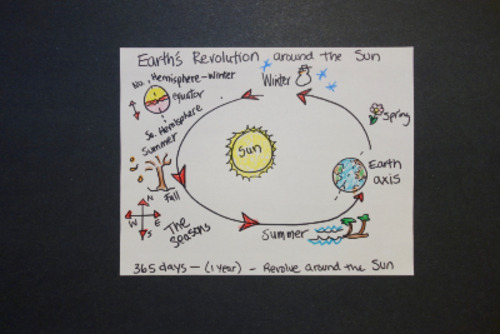 Earth's Revolution around the Sun
No. Hemisphere - Winter
Winter
equator
Spring
So. Hemisphere
Summer
Sun
Earth
axis
Fall
N
W E
S
The
Seasons
Summer
365 days — (1 year) - Revolve around the Sun